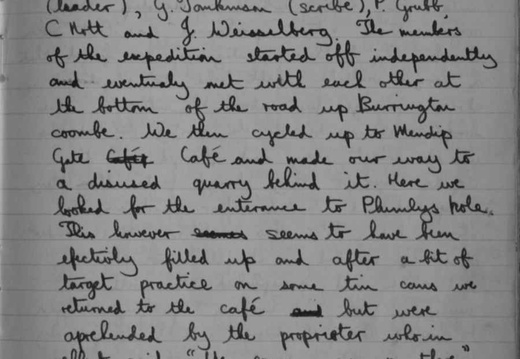 (leader), G. Tomkinson (scribe), P. Grubb
C Mott and J. Weisselberg. The members
of the expedition started off independently
and eventualy met with each other at
the bottom of the road up Burrington
coombe. We then cycled up to Mendip
Gate Café and made our way to
a disused quarry behind it. Here we
looked for the enterance to Plumlys hole.
This however seems to have been
efectivly filled up and after a bit of
target practice on some tin cans we
returned to the café but were
aprehended by the proprieter who in